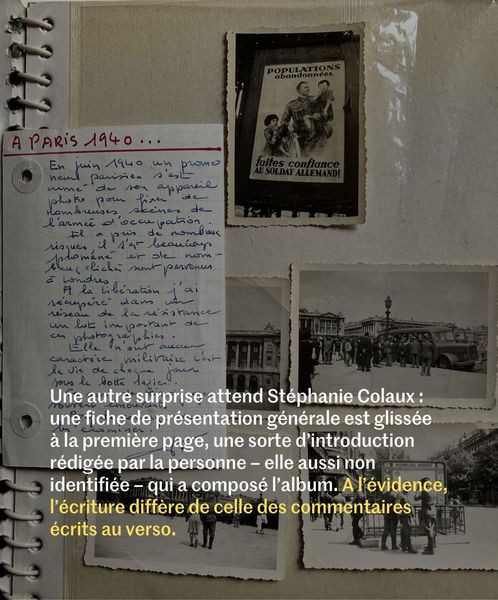 POPULATIONS
abandonnées,
faites confiance
AU SOLDAT ALLEMAND!
A PARIS 1940...
En juin 1940 un prome
neur parisien s'est
armé de son appareil
photo pour fixer de
nombreuses scènes de
l'armée d'occupation.
Il a pris de nombreux
risques, il s'est beaucoup
promené et de nom-
breux clichés sont parvenus
à Londres.
A la libération j'ai
récupéré dans un
réseau de la résistance
un lot important de
ces photographies.
Elles n'ont aucun
caractère militaire c'est
la vie de chaque jour
sous la botte nazie.
Une autre surprise attend Stéphanie Colaux :
une fiche de présentation générale est glissée
à la première page, une sorte d'introduction
rédigée par la personne – elle aussi non
identifiée – qui a composé l'album. A l'évidence,
l'écriture diffère de celle des commentaires
écrits au verso.